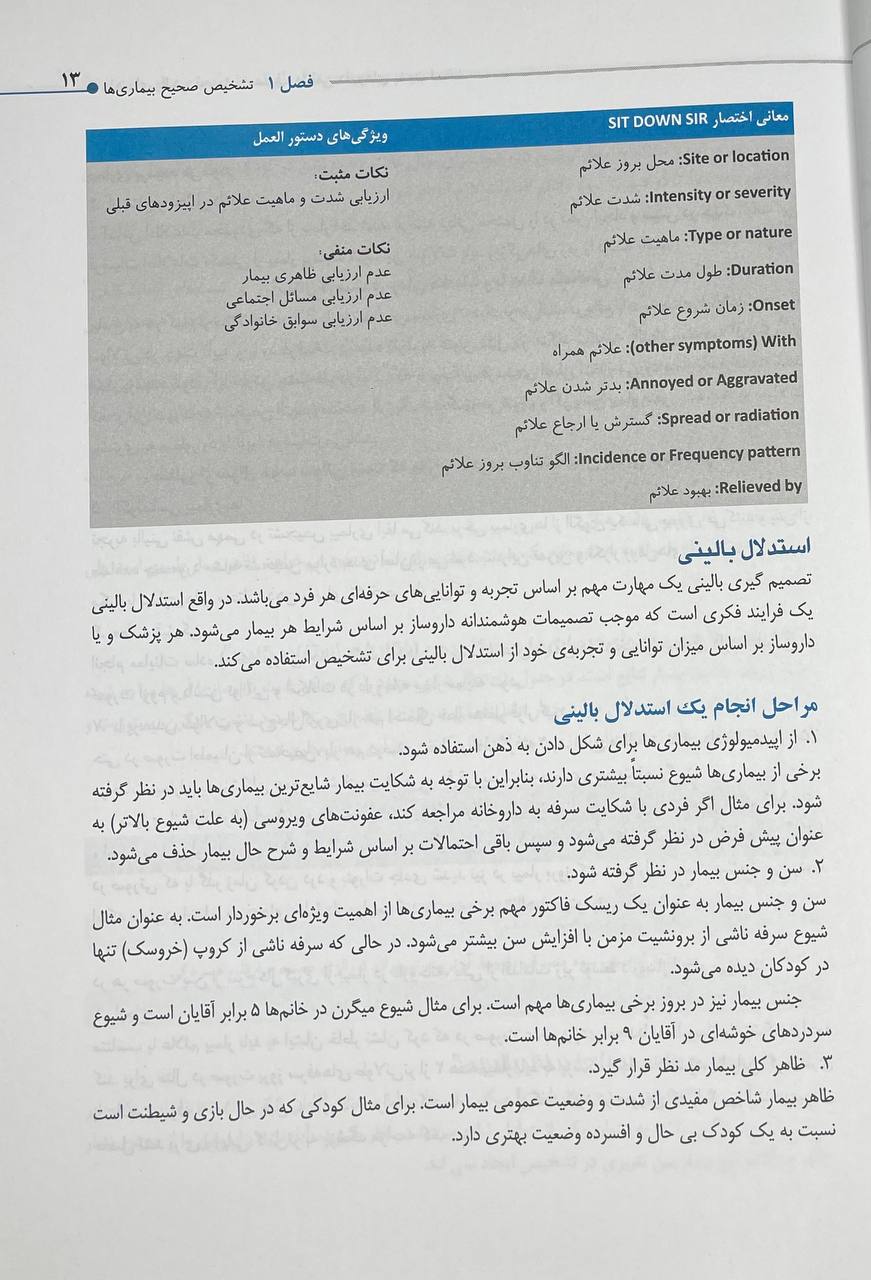 فصل ۱ تشخیص صحیح بیماری‌ها ۱۳
معانی اختصار SIT DOWN SIR
Site or location: محل بروز علائم
Intensity or severity: شدت علائم
Type or nature: ماهیت علائم
Duration: طول مدت علائم
Onset: زمان شروع علائم
With (other symptoms): علائم همراه
Annoyed or Aggravated: بدتر شدن علائم
Spread or radiation: گسترش یا ارجاع علائم
Incidence or Frequency pattern: الگو تناوب بروز علائم
Relieved by: بهبود علائم
ویژگی‌های دستور العمل
نکات مثبت:
ارزیابی شدت و ماهیت علائم در اپیزودهای قبلی
نکات منفی:
عدم ارزیابی ظاهری بیمار
عدم ارزیابی مسائل اجتماعی
عدم ارزیابی سوابق خانوادگی
استدلال بالینی
تصمیم گیری بالینی یک مهارت مهم بر اساس تجربه و توانایی‌های حرفه‌ای هر فرد می‌باشد. در واقع استدلال بالینی
یک فرایند فکری است که موجب تصمیمات هوشمندانه داروساز بر اساس شرایط هر بیمار می‌شود. هر پزشک و یا
داروساز بر اساس میزان توانایی و تجربه‌ی خود از استدلال بالینی برای تشخیص استفاده می‌کند.
مراحل انجام یک استدلال بالینی
۱. از اپیدمیولوژی بیماری‌ها برای شکل دادن به ذهن استفاده شود.
برخی از بیماری‌ها شیوع نسبتاً بیشتری دارند، بنابراین با توجه به شکایت بیمار شایع‌ترین بیماری‌ها باید در نظر گرفته
شود. برای مثال اگر فردی با شکایت سرفه به داروخانه مراجعه کند، عفونت‌های ویروسی (به علت شیوع بالاتر) به
عنوان پیش فرض در نظر گرفته می‌شود و سپس باقی احتمالات بر اساس شرایط و شرح حال بیمار حذف می‌شود.
۲. سن و جنس بیمار در نظر گرفته شود.
سن و جنس بیمار به عنوان یک ریسک فاکتور مهم برخی بیماری‌ها از اهمیت ویژه‌ای برخوردار است. به عنوان مثال
شیوع سرفه ناشی از برونشیت مزمن با افزایش سن بیشتر می‌شود. در حالی که سرفه ناشی از کروپ (خروسک) تنها
در کودکان دیده می‌شود.
جنس بیمار نیز در بروز برخی بیماری‌ها مهم است. برای مثال شیوع میگرن در خانم‌ها ۵ برابر آقایان است و شیوع
سردردهای خوشه‌ای در آقایان ۹ برابر خانم‌ها است.
۳. ظاهر کلی بیمار مد نظر قرار گیرد.
ظاهر بیمار شاخص مفیدی از شدت و وضعیت عمومی بیمار است. برای مثال کودکی که در حال بازی و شیطنت است
نسبت به یک کودک بی حال و افسرده وضعیت بهتری دارد.